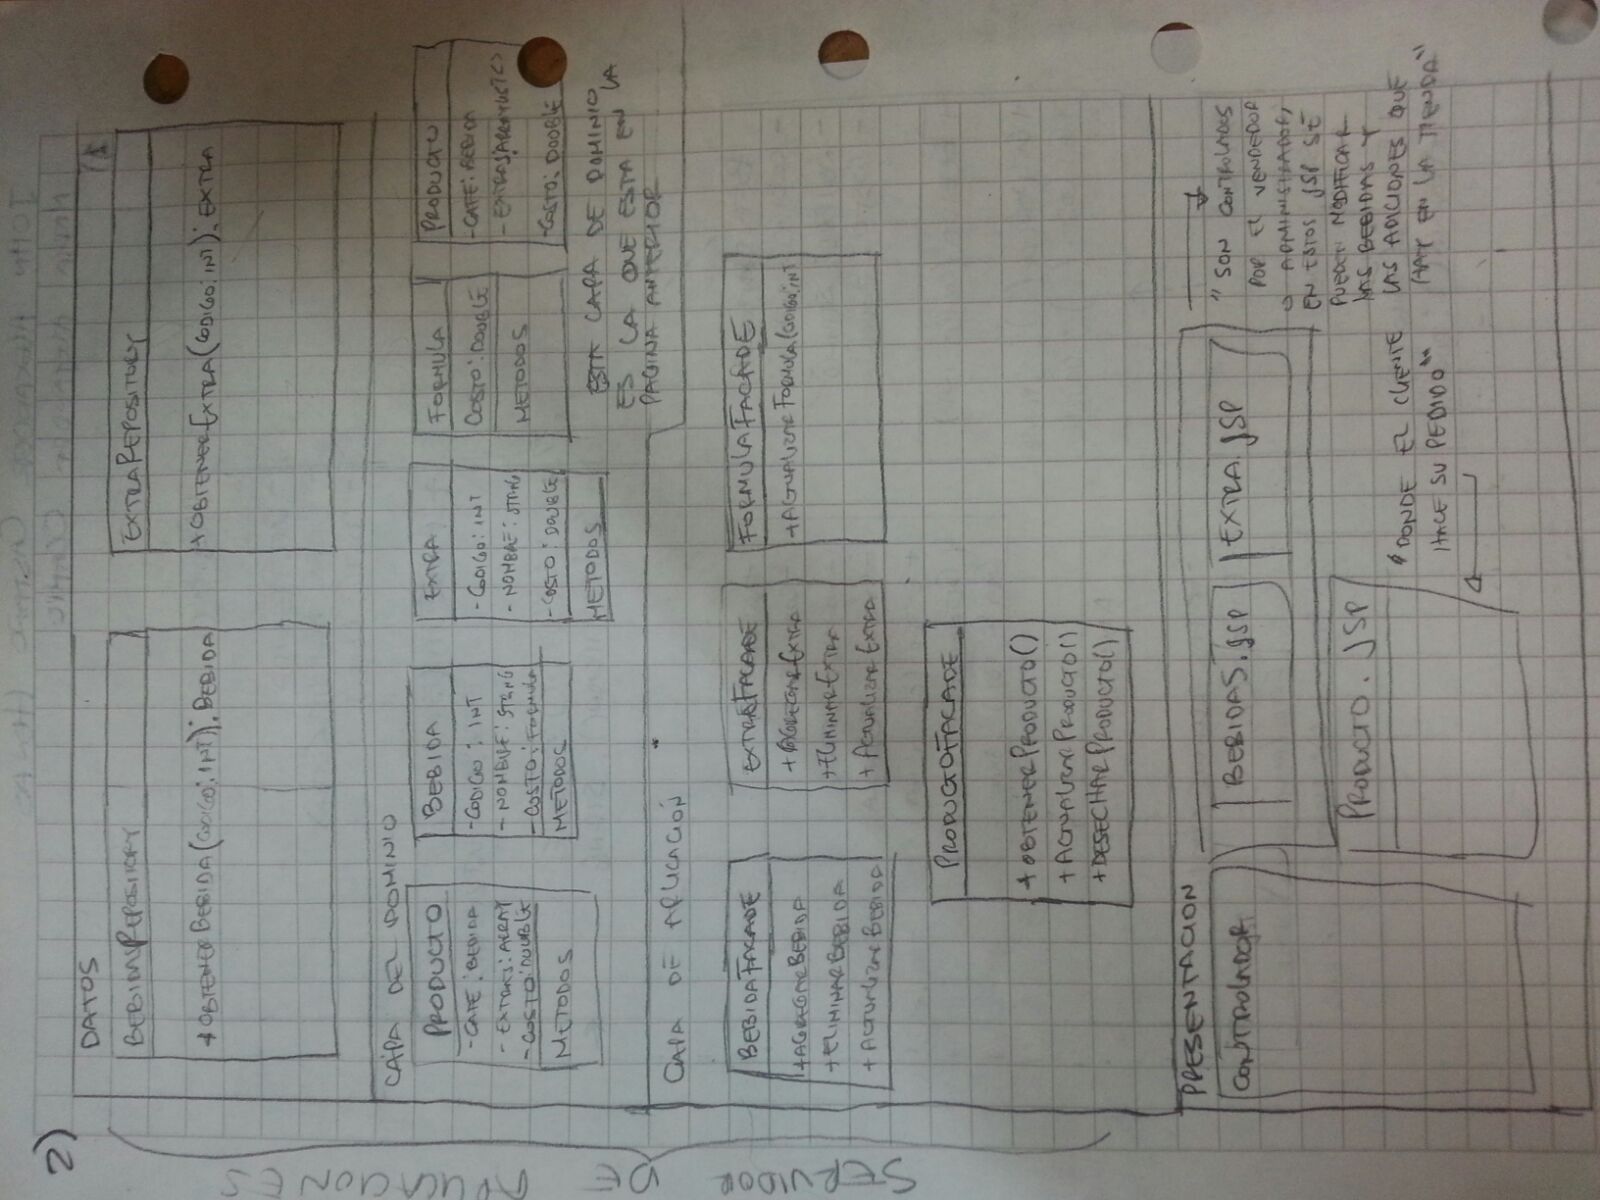 2)
DATOS
BEBIDAREPOSITORY
+OBTENERBEBIDA(CODIGO:INT):BEBIDA
EXTRAREPOSITORY
+OBTENEREXTRA(CODIGO:INT):EXTRA
CAPA DEL DOMINIO
PRODUCTO
-CAFE:BEBIDA
-EXTRAS:ARRAY
-COSTO:DOUBLE
METODOS
BEBIDA
-CODIGO:INT
-NOMBRE:STRING
-COSTO:FORMULA
METODOS
EXTRA
-CODIGO:INT
-NOMBRE:STRING
-COSTO:DOUBLE
METODOS
FORMULA
COSTO:DOUBLE
METODOS
PRODUCTO
-CAFE:BEBIDA
-COSTO:DOUBLE
ESTA CAPA DE DOMINIO
ES LA QUE ESTA EN LA
PAGINA ANTERIOR
CAPA DE APLICACIÓN
BEBIDAFACADE
+AGREGARBEBIDA
+ELIMINARBEBIDA
+ACTUALIZARBEBIDA
EXTRAFACADE
+AGREGAREXTRA
+ELIMINAREXTRA
+ACTUALIZAREXTRA
FORMULAFACADE
+ACTUALIZARFORMULA(CODIGO:INT
PRODUCTOFACADE
+OBTENERPRODUCTO()
+ACTUALIZARPRODUCTO()
+DESECHARPRODUCTO()
PRESENTACION
CONTROLADOR
BEBIDAS.JSP
EXTRA.JSP
PRODUCTO.JSP
"SON CONTROLADOS
POR EL VENDEDOR
O ADMINISTRADOR,
EN ESTOS JSP SE
PUEDEN MODIFICAR
LAS BEBIDAS Y
LAS ADICIONES QUE
HAY EN LA TIENDA"
"DONDE EL CLIENTE
HACE SU PEDIDO"
SERVIDOR
DE
APLICACIONES